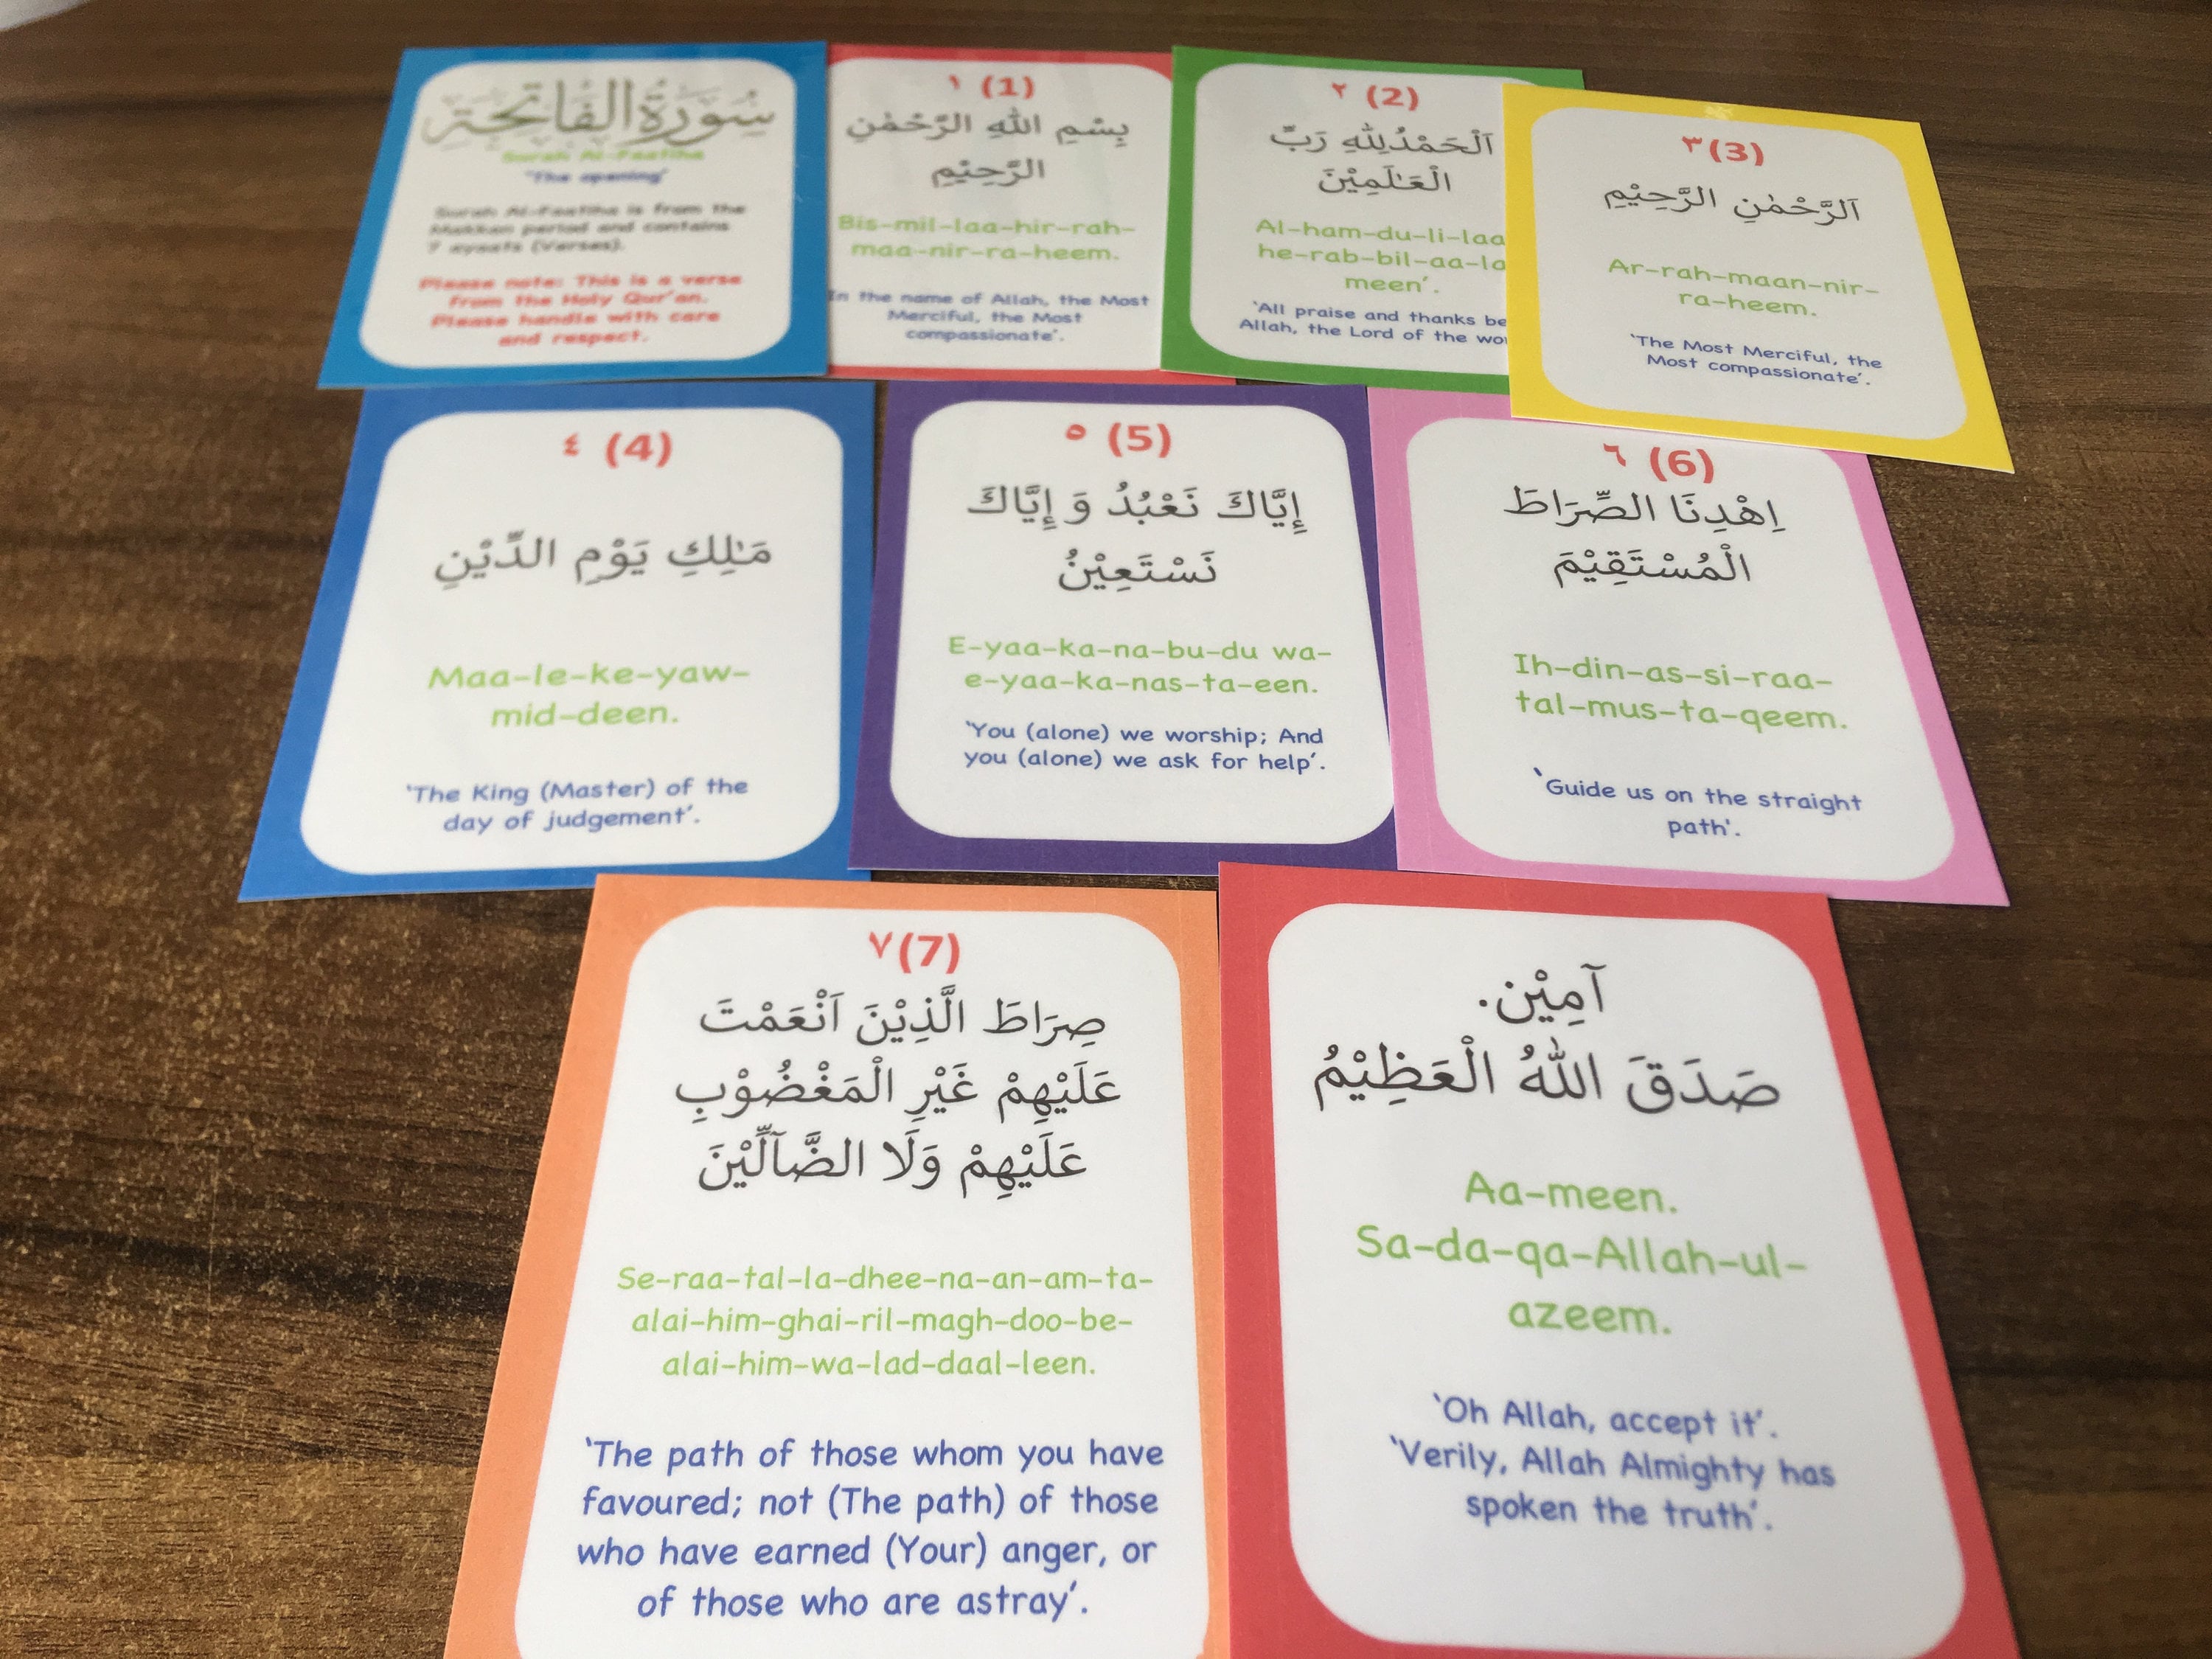 سُوْرَةُ الفَاتِحَة
Surah Al-Faatiha
'The opening'
Surah Al-Faatiha is from the
Makkan period and contains
7 ayaats (Verses).
Please note: This is a verse
from the Holy Qur'an.
Please handle with care
and respect.
١ (1)
بِسْمِ اللهِ الرَّحْمٰنِ
الرَّحِيْمِ
Bis-mil-laa-hir-rah-
maa-nir-ra-heem.
In the name of Allah, the Most
Merciful, the Most
compassionate'.
٢ (2)
اَلْحَمْدُلِلّٰهِ رَبِّ
الْعَـٰلَمِيْنَ
Al-ham-du-li-laa
he-rab-bil-aa-la
meen'.
'All praise and thanks be
Allah, the Lord of the
٣(3)
اَلرَّحْمٰنِ الرَّحِيْمِ
Ar-rah-maan-nir-
ra-heem.
'The Most Merciful, the
Most compassionate'.
٤ (4)
مَـٰلِكِ يَوْمِ الدِّيْنِ
Maa-le-ke-yaw-
mid-deen.
'The King (Master) of the
day of judgement'.
٥ (5)
إِيَّاكَ نَعْبُدُ وَ إِيَّاكَ
نَسْتَعِيْنُ
E-yaa-ka-na-bu-du wa-
e-yaa-ka-nas-ta-een.
'You (alone) we worship; And
you (alone) we ask for help'.
٦ (6)
اِهْدِنَا الصِّرَاطَ
الْمُسْتَقِيْمَ
Ih-din-as-si-raa-
tal-mus-ta-qeem.
'Guide us on the straight
path'.
٧(7)
صِرَاطَ الَّذِيْنَ اَنْعَمْتَ
عَلَيْهِمْ غَيْرِ الْمَغْضُوْبِ
عَلَيْهِمْ وَلَا الضَّآلِّيْنَ
Se-raa-tal-la-dhee-na-an-am-ta-
alai-him-ghai-ril-magh-doo-be-
alai-him-wa-lad-daal-leen.
'The path of those whom you have
favoured; not (The path) of those
who have earned (Your) anger, or
of those who are astray'.
آمِيْن.
صَدَقَ اللهُ الْعَظِيْمُ
Aa-meen.
Sa-da-qa-Allah-ul-
azeem.
'Oh Allah, accept it'.
'Verily, Allah Almighty has
spoken the truth'.